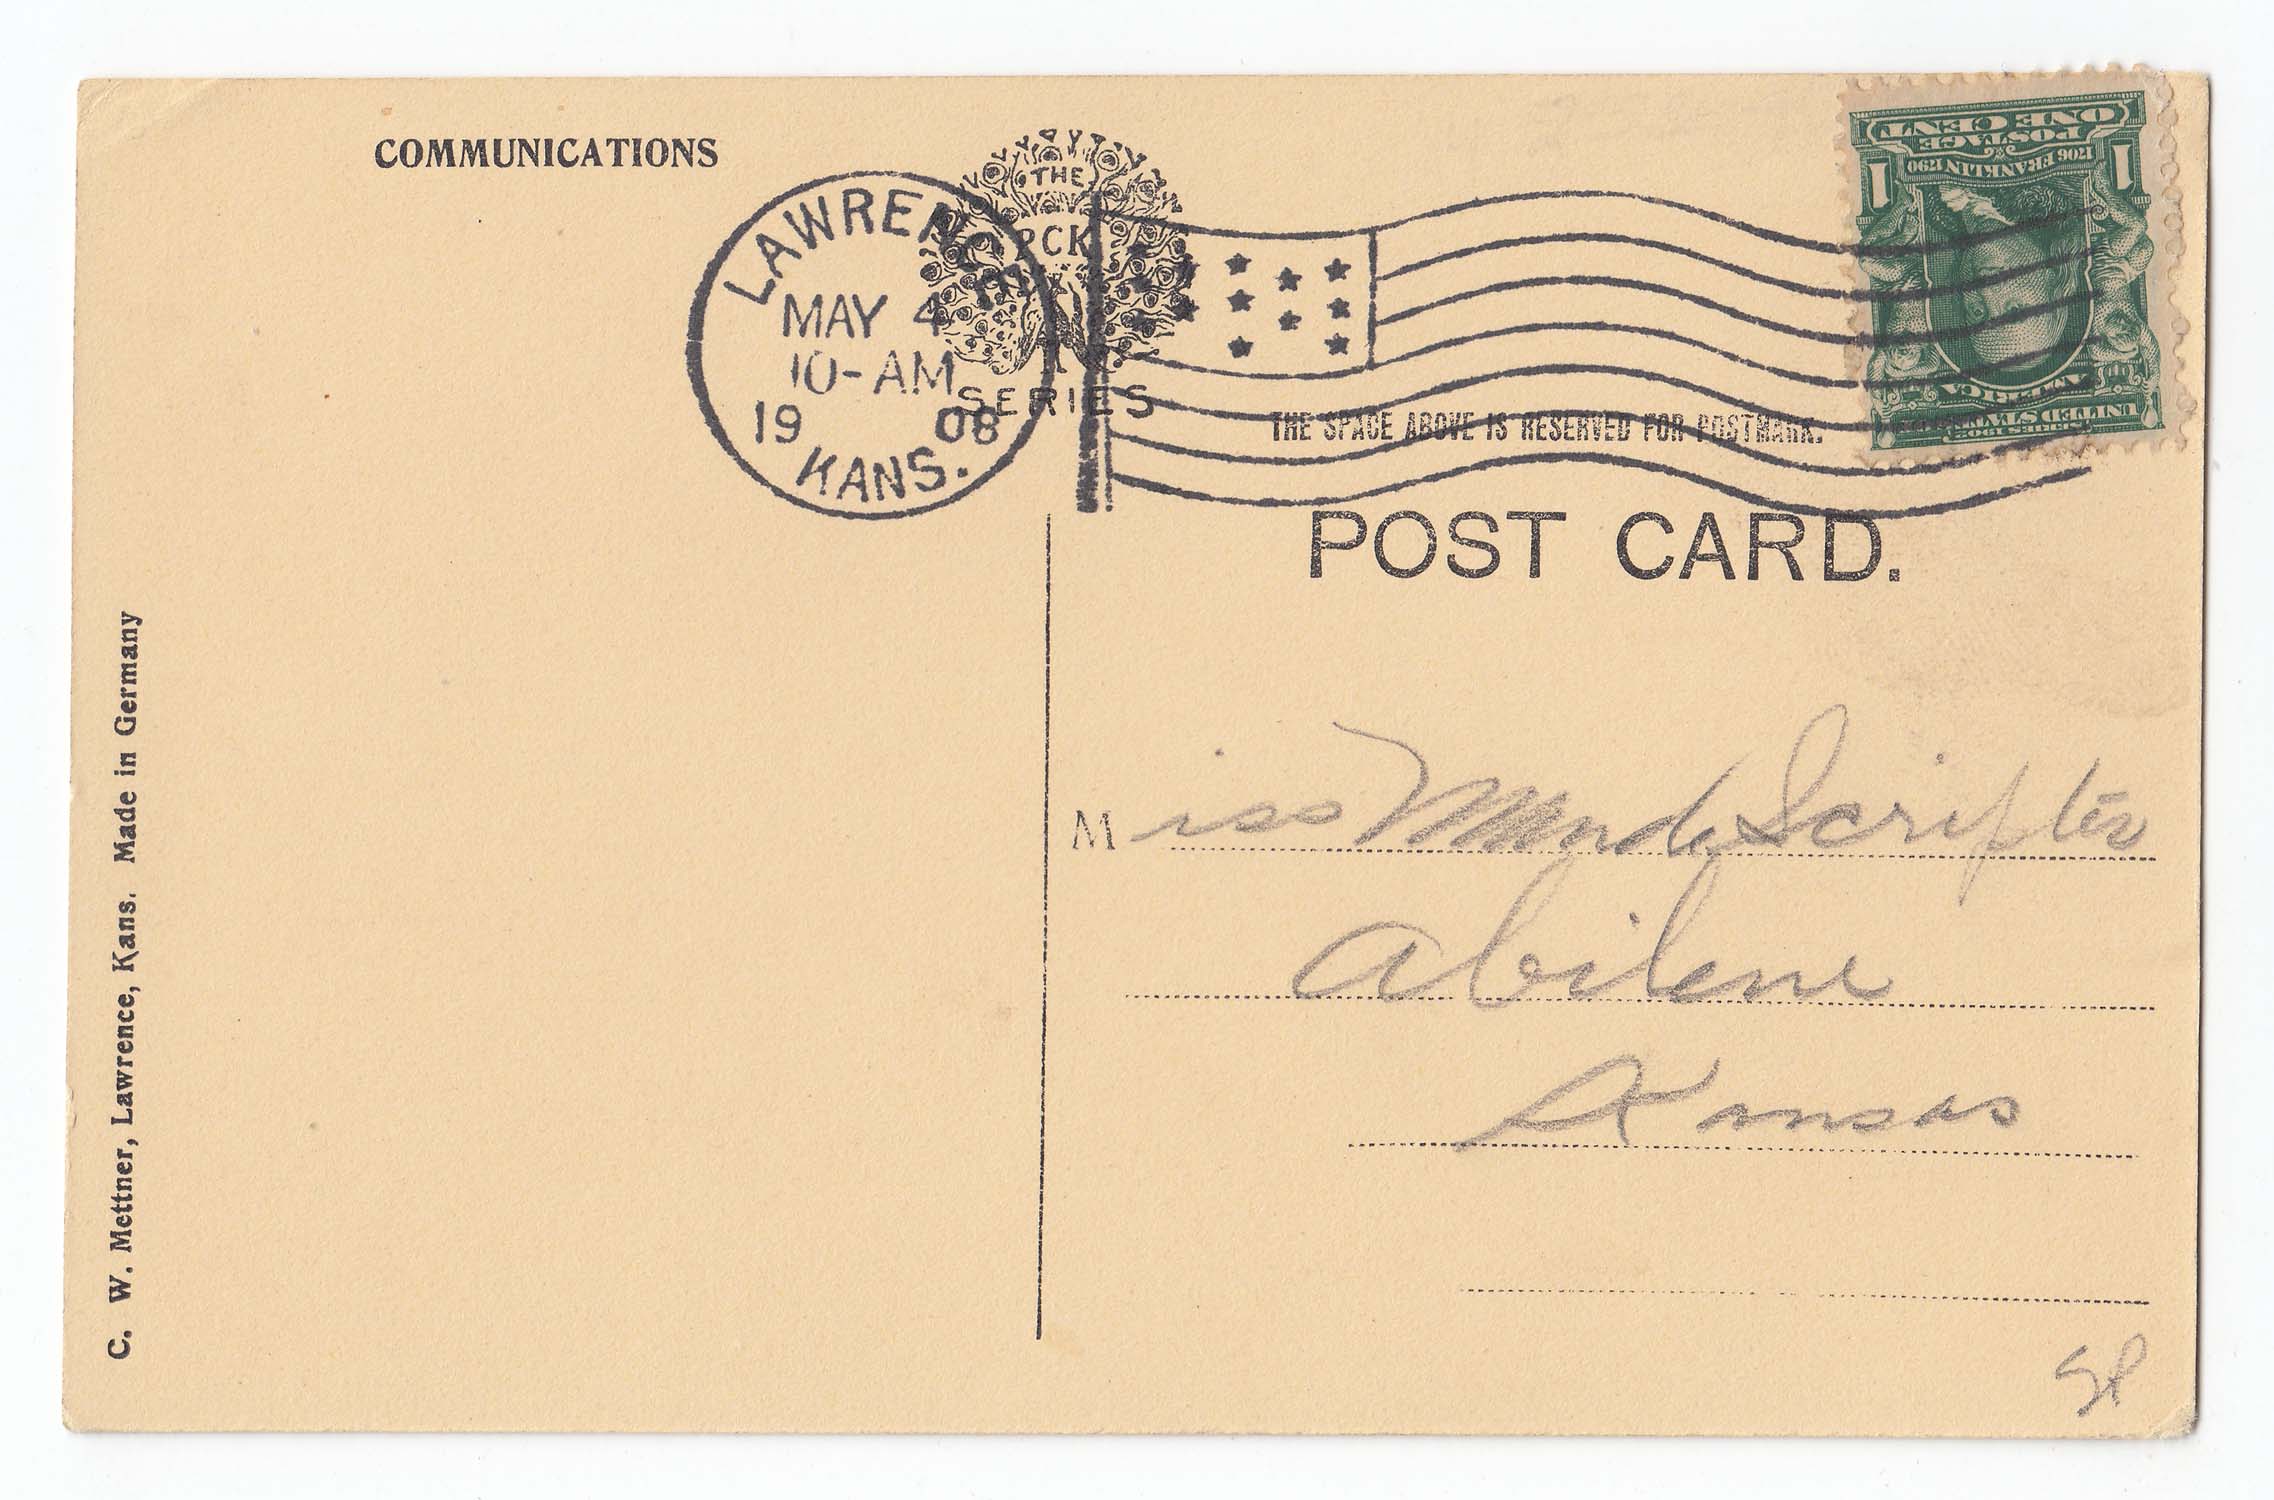 COMMUNICATIONS
THE
PCK
SERIES
LAWRENCE
MAY 4
10-AM
19 08
KANS.
ONE CENT
POSTAGE
1706 FRANKLIN 1790
1 1
SERIES 1902
UNITED STATES OF AMERICA
THE SPACE ABOVE IS RESERVED FOR POSTMARK.
POST CARD.
Miss Scripter
Abilene
Kansas
C. W. Mettner, Lawrence, Kans. Made in Germany